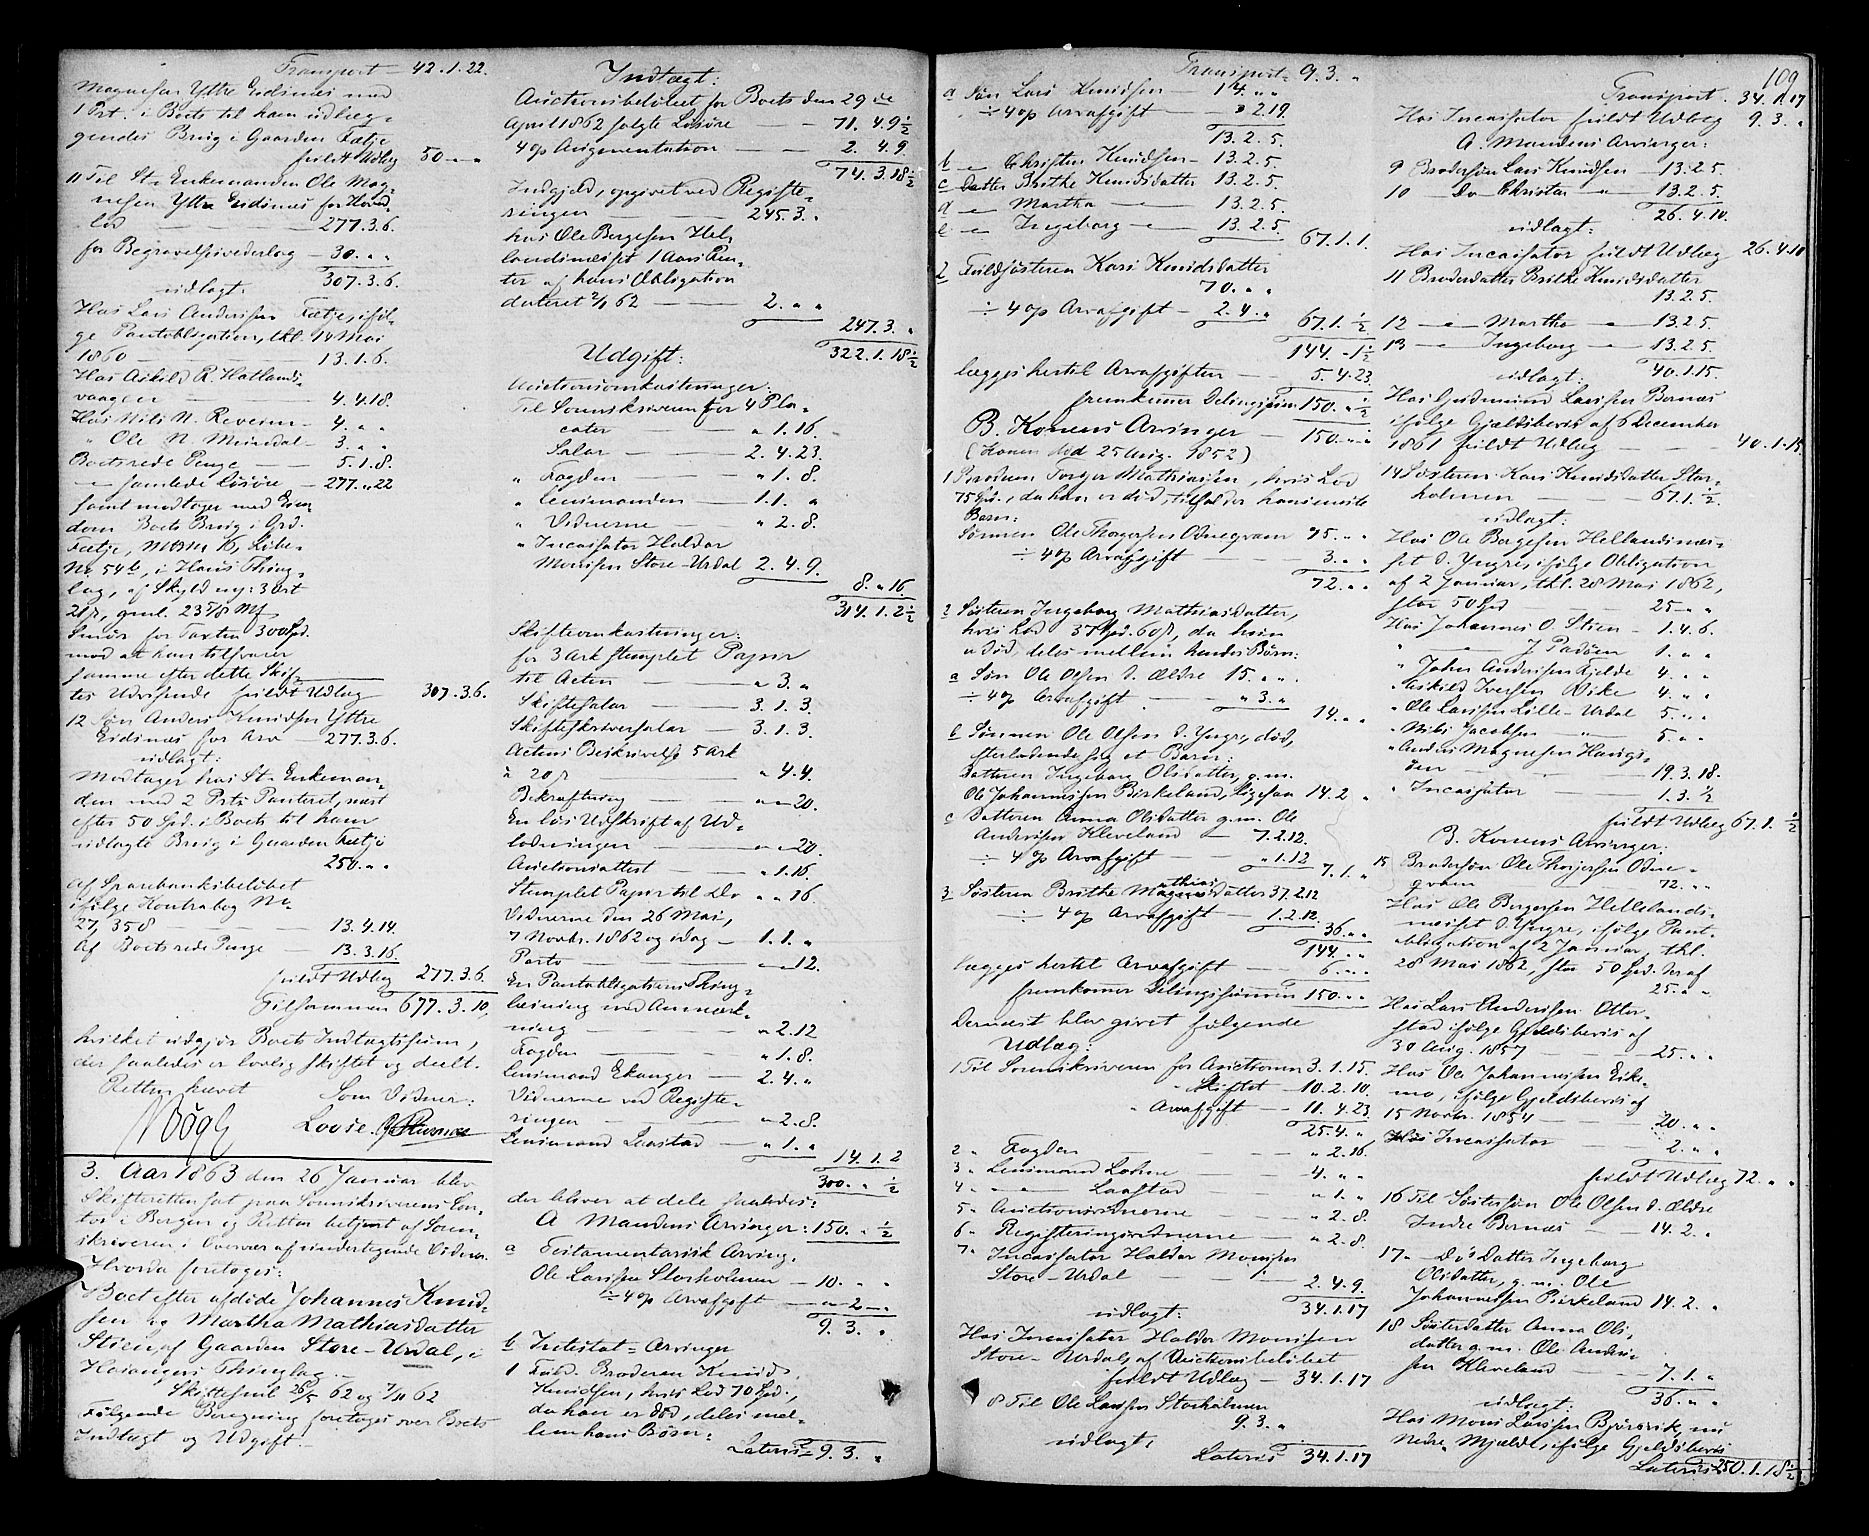 Transport - 42.1.22.
Magnesen Yttre Eidsnes med
1 Prt. i Boets til ham udlæg-
gendes Brug i Gaarden Fætje
fuldt Udlæg 50 " "
11 Til St. Enkemanden Ole Mag-
nesen Yttre Eidsnes for Hoved-
lod - 277.3.6.
for Begravelsesvederlag - 30 " "
307.3.6.
udlagt:
Hos Lars Anderssen Fætje, iføl-
ge Pantobligation, thl. 14 Mai
1860 - 13.1.6.
Hos Askild R. Hatlands-
vaagen - 4.4.18.
Hos Nils N. Reveim - 4. " "
" Ole N. Meindal - 3. " "
Boets rede Penge - 5.1.8.
— samlede Løsøre - 277. " 22
samt modtager med Eien-
dom Boets Brug i Grd.
Fætje, Matr. No 16, Løbe-
No. 54b, i Haus Thing-
lag, af Skyld ny: 3 Ort
21 s, gml. 23 5/8 Mk
Smør for Taxten 300 Spd.
mod at han tilsvarer
samme efter dette Skif-
tes Udvisende fuldt Udlæg 307.3.6.
12 Søn Anders Knudsen Yttre
Eidsnes for Arv - 277.3.6.
udlagt:
Modtager hos St. Enkeman-
den med 2 Prts Panteret, næst
efter 50 Spd. i Boets til ham
udlagte Brug i Gaarden Fætje
250. " "
Af Sparebanksbeløbet
ifølge Kontrabog No
27,358 - 13.4.14.
Af Boets rede Penge - 13.3.16.
fuldt Udlæg 277.3.6.
Tilsammen 677.3.10,
hvilket udgjør Boets Indtægtssum,
der saaledes er lovlig skiftet og deelt.
Retten hævet Som Vidner:
3. Aar 1863 den 26 Januar blev
Skifteretten sat paa Sorenskriverens Con-
tor i Bergen og Retten betjent af Soren-
skriveren, i Overvær af undertegnede Vidner.
Hvorda foretoges:
Boet efter afdøde Johannes Knud-
sen og Martha Mathiasdatter
Stien af Gaarden Store-Urdal, i
Hosangers Thinglag. -
Skiftesmil 26/5 62 og 7/11 62
Følgende Beregning foretoges over Boets
Indtægt og Udgift. -
Indtægt:
Auctionsbeløbet for Boets den 29de
April 1862 solgte Løsøre - 71.4.9½
4 op Augmentation - 2.4.9.
74.3.18½
Indgjeld, opgivet ved Registe-
ringen - 245.3. "
hos Ole Børgesen Hel-
landsnæset 1 Aars Ren-
ter af hans Obligation
dateret 2/1 62 - 2. " "
247.3. "
322.1.18½
Udgift:
Auctionsomkostninger:
Til Sorenskriveren for 4 Pla-
cater - " 1.16.
Salær - 2.4.23.
" Fogden - " 1.8.
" Lensmanden - 1.1. "
" Vidnerne - " 2.8.
" Incassator Haldor
Monssen Store-Urdal 2.4.9.
8. " 16
314.1.2½
Skifteomkostninger:
for 3 Ark stemplet Papir
til Acten - " 3. "
Skiftesalær - 3.1.3.
Skifteskriversalær - 3.1.3.
Actens Beskrivelse 5 Ark
à 20 s - " 4.4.
Bekræftning - " " 20.
En løs Udskrift af Ud-
lodningen - " " 20.
Auctionsattest - " 1.16.
Stemplet Papir til Do " " 16
Vidnerne den 26 Mai,
7 Novbr. 1862 og idag - 1.1. "
Porto - " " 12.
En Pantobligations Thing-
læsning med Anmærk-
ning - " 2.12
Fogden - " 1.8.
Lensmand Ekanger - 2.4. "
Vidnerne ved Registe-
ringen - " 2.8.
Lensmand Laastad - " 1. "
14.1.2
300. " ½
der bliver at dele saaledes:
A Mandens Arvinger: 150. " ½
a Testamentarisk Arving.
Ole Larssen Storholmen - 10. " "
÷ 4 op Arvafgift - " 2 "
9.3. "
b Intestat-Arvinger
1 Fuld. Broderen Knud
Knudsen, hvis Lod 70 Spd.,
da han er død, deles mel-
lem hans Børn:
Lateris 9.3. "
Transport 9.3. "
a Søn Lars Knudsen - 14. " "
÷ 4 op Arvafgift - " 2.19.
13.2.5.
b — Christen Knudsen - 13.2.5.
c Datter Brithe Knudsdatter 13.2.5.
d — Martha — 13.2.5.
e — Ingeborg — 13.2.5.
67.1.1.
2 Fuldsøsteren Kari Knudsdatter
70. " "
÷ 4 op Arvafgift - 2.4. "
67.1. ½
144. - 1½
lægges hertil Arvafgiften - 5.4.23.
fremkommer Delingssum 150. " ½
B. Konens Arvinger - 150. " "
(Konen død 25 Aug. 1852)
1 Broderen Torger Mathiassen, hvis Lod
75 Spd., da han er død, tilfalder hans eneste
Barn:
Sønnen Ole Thorgersen Odnegram 75. " "
÷ 4 op Arvafgift - 3. " "
72. " "
2 Søsteren Ingeborg Mathiasdatter,
hvis Lod 37 Spd. 60 s, da hun
er død, deles mellem hendes Børn:
a Søn Ole Olsen d. Ældre 15. " "
÷ 4 op Arvafgift - " 3. "
14. " "
b Sønnen Ole Olsen d. Yngre, død,
efterladende sig et Barn:
Datteren Ingeborg Olsdatter, g.m.
Ole Johannessen Birkeland, ligesaa 14.2 "
c Datteren Anna Olsdatter g.m. Ole
Anderssen Kleveland - 7.2.12.
÷ 4 op Arvafgift - " 1.12
7.1. "
3 Søsteren Brithe Mathiasdatter 37.2.12
÷ 4 op Arvafgift - 1.2.12.
36. " "
144. " "
Lægges hertil Arvafgift - 6. " "
fremkommer Delingssummen 150. " "
Dernæst blev givet følgende
Udlæg:
1 Til Sorenskriveren for Auctionen 3.1.15.
" Skiftet - 10.2.10.
" Arvafgift - 11.4.23.
25.4. "
2 " Fogden - " 2.16.
3 " Lensmand Lohne - 4. " "
4 " — Laastad - " 1. "
5 " Auctionsvidnerne - " 2.8.
6 " Registeringsvidnerne - " 2.8.
7 " Incassator Haldor Monssen
Store-Urdal - 2.4.9.
34.1.17
udlagt:
Hos Incassator Haldor Monssen
Store-Urdal, af Auctionsbeløbet
fuldt Udlæg - 34.1.17
8 Til Ole Larssen Storholmen
9.3. "
udlagt:
Lateris 34.1.17
109
Transport. 34.1.17
Hos Incassator fuldt Udlæg 9.3. "
A. Mandens Arvinger:
9 Brodersøn Lars Knudsen - 13.2.5.
10 Do Christen — - 13.2.5.
26.4.10.
udlagt:
Hos Incassator fuldt Udlæg 26.4.10
11 Broderdatter Brithe Knudsdatter
13.2.5.
12 — Martha — 13.2.5.
13 — Ingeborg — 13.2.5.
40.1.15.
udlagt:
Hos Gudmund Larssen Bernæs
ifølge Gjeldsbevis af 6 December
1861 fuldt Udlæg - 40.1.15
14 Søsteren Kari Knudsdatter Stor-
holmen - 67.1. ½
udlagt:
Hos Ole Børgesen Hellandsnæs-
set d. Yngre, ifølge Obligation
af 2 Januar, thl. 28 Mai 1862,
stor 50 Spd - 25. " "
Hos Johannes O. Stien - 1.4.6.
" — J Padøen 1. " "
" John Anderssen Fjelde 4. " "
" Askild Iversen Vike 4. " "
" Ole Larssen Lille-Urdal 5. " "
" Nils Jacobsen " 5. " "
" Anders Magnesen Haugs-
den - 19.3.18.
" Incassator - 1.3. ½
fuldt Udlæg 67.1. ½
B. Konens Arvinger:
15 Brodersøn Ole Thorgersen Odne-
gram 72. " "
Hos Ole Børgesen Hellands-
næset d. Yngre, ifølge Pant-
obligation af 2 Januar, thl.
28 Mai 1862, stor 50 Spd. her af
25. " "
Hos Lars Anderssen Otter-
stad ifølge Gjeldsbevis af
30 Aug. 1857 - 25. " "
Hos Ole Johannessen Eike-
mo, ifølge Gjeldsbevis af
15 Novbr. 1854 - 20. " "
Hos Incassator - 2. " "
fuldt Udlæg 72. " "
16 Til Søstersøn Ole Olsen d. Ældre
Indre Bernæs - 14.2. "
17 " Do Datter Ingeborg
Olsdatter, g.m. Ole
Johannessen Birkeland 14.2. "
18 Søsterdatter Anna Ols-
datter g.m. Ole Anders-
sen Kleveland - 7.1. "
36. " "
udlagt:
Hos Mons Larssen Bjørsvik, nu
Nedre Mjelde, ifølge Gjeldsbevis
Lateris 250.1.18½